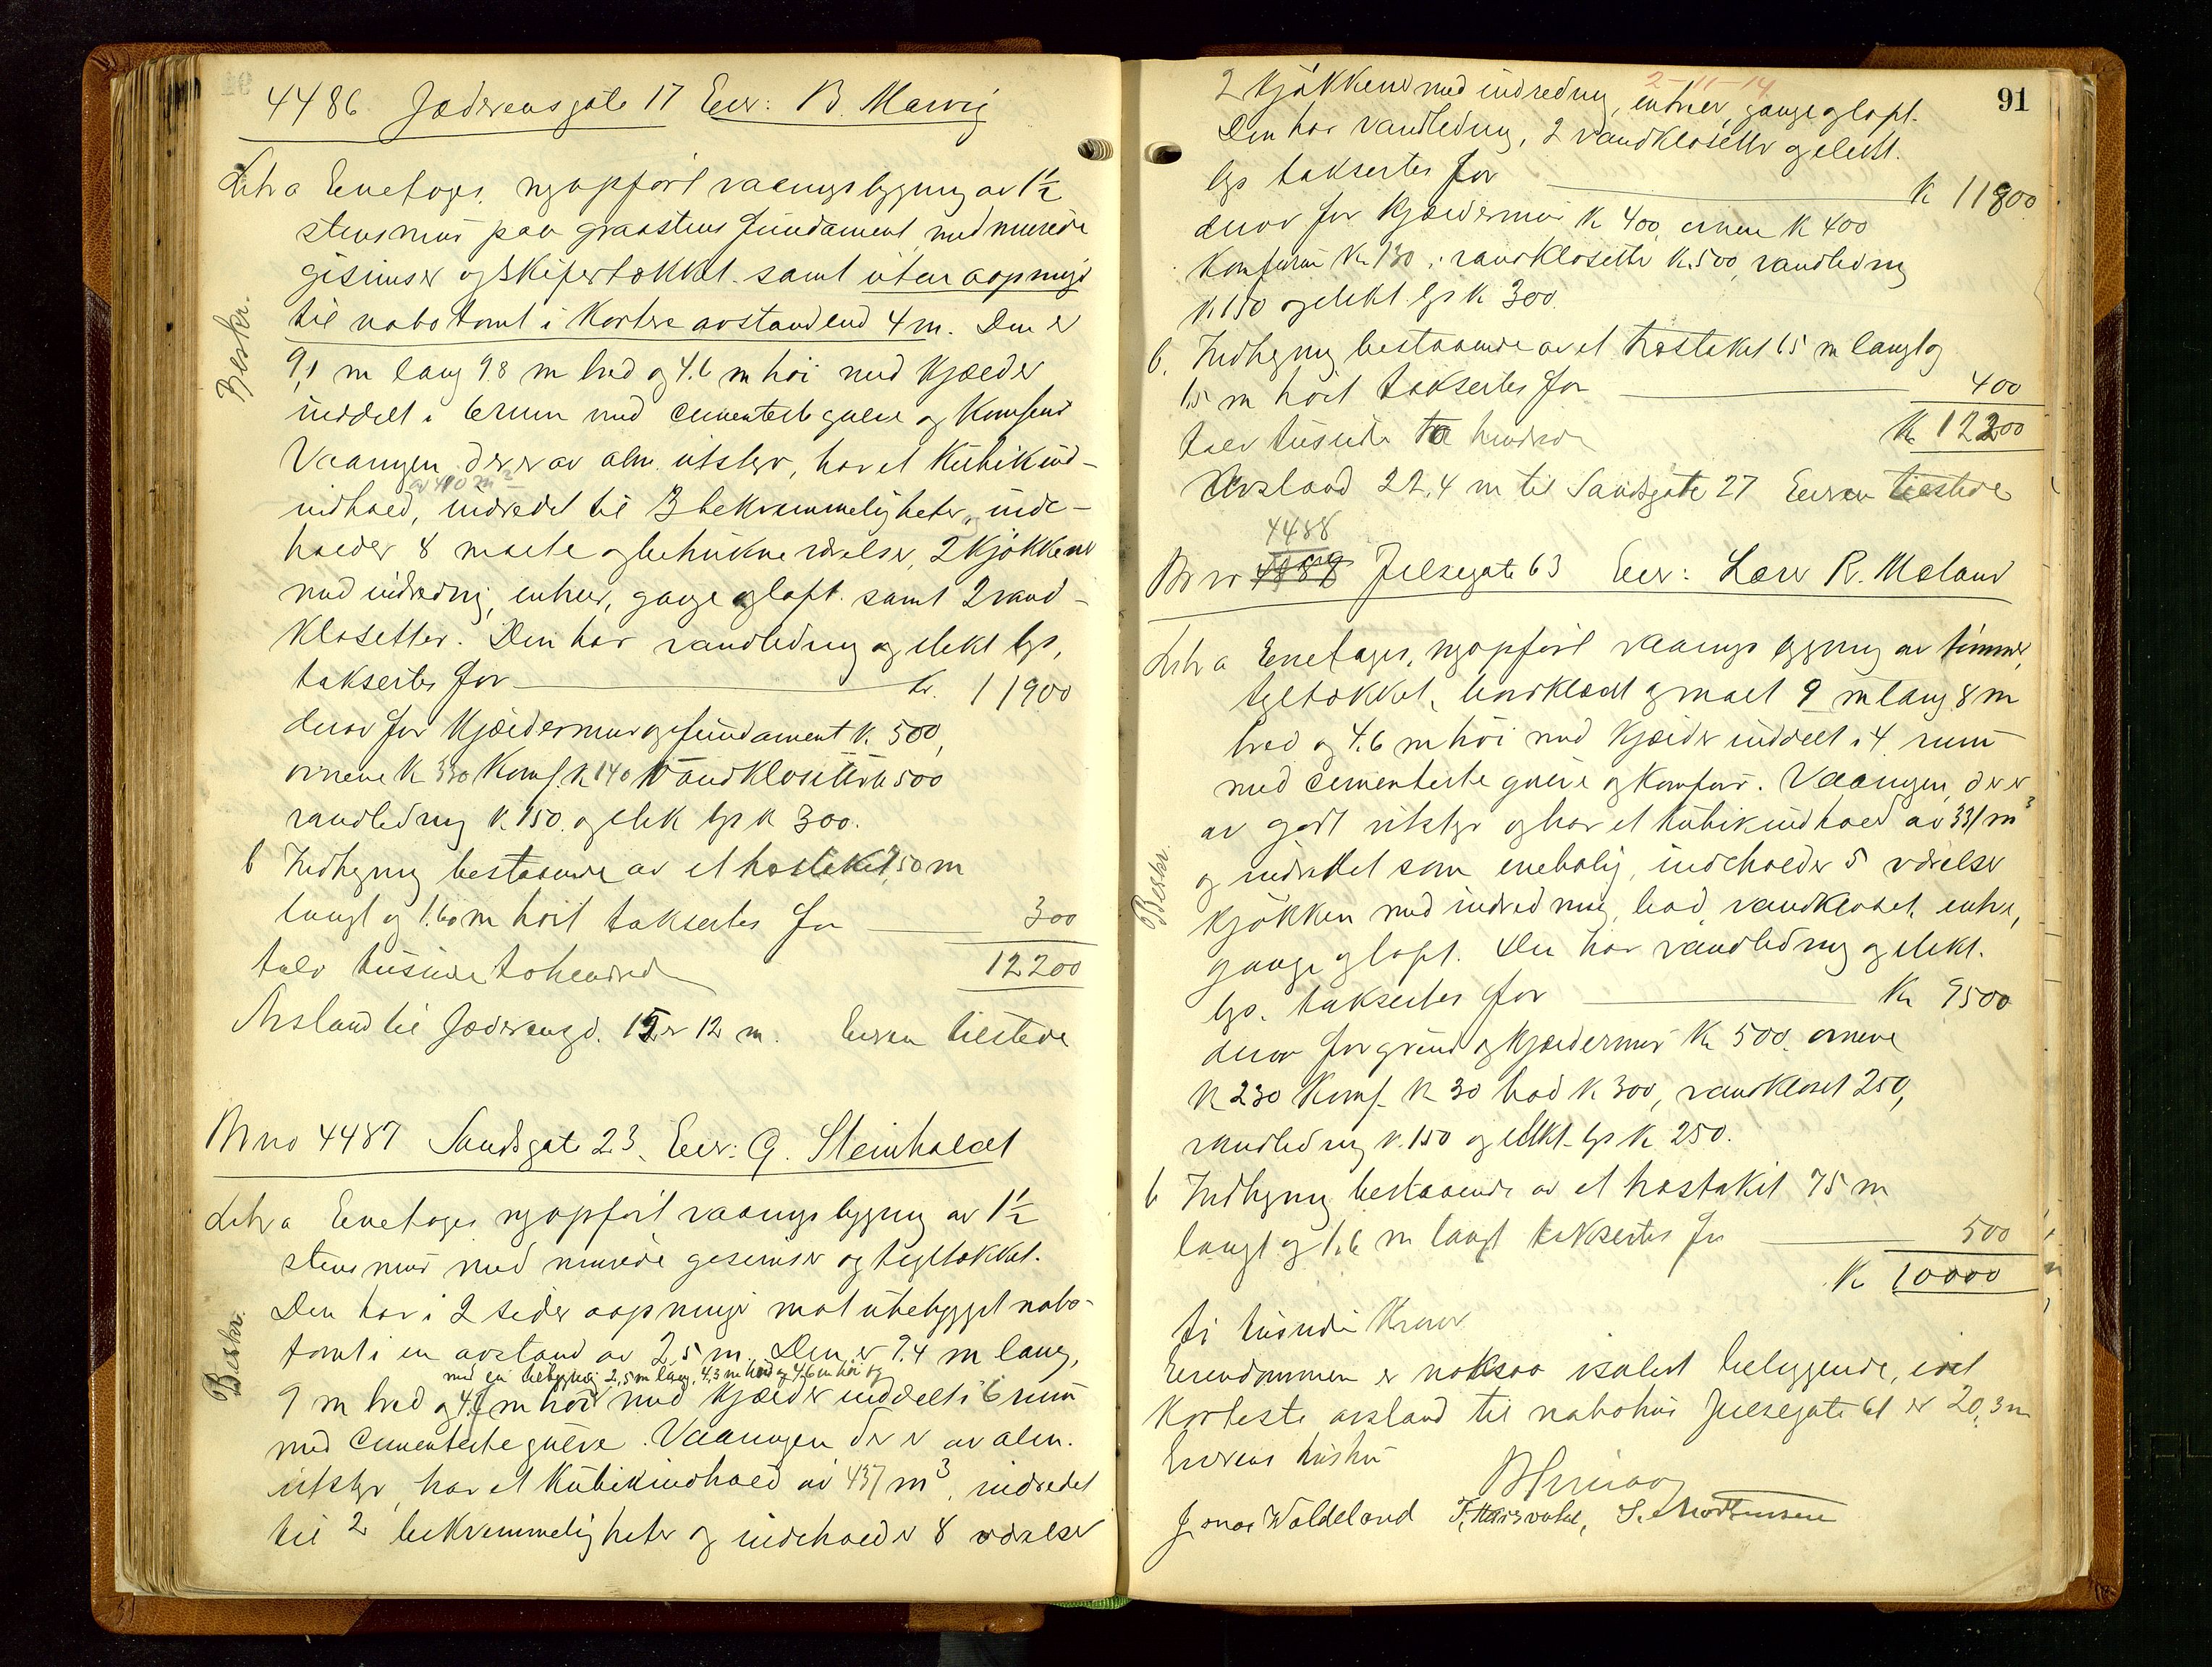 4486 Jæderensgate 17 Eier: B. Marvig
Litra Enetages, nyopført vaaningsbygning av 1½
stens mur paa graastens fundament med murede
gesimser og skifertækket samt uten aapninger
til nabotomt i kortere avstand end 4 m. Den er
9,1 m lang 9.8 m bred og 4.6 m høi med kjælder
inddelt i 6 rum med cementerte gulve og komfur
Beskr.
Vaaningen der er av alm. utstyr, har et kubikind-
av 410 m³
indhold, indredet til 3 bekvemmeligheter, inde-
holder 8 malte og betrukne værelser, 2 kjøkkener
med indredning, entreer, gange og loft samt 2 vand-
klosetter. Den har vandledning og elekt lys,
taksertes for kr. 11900
derav for kjældermur og fundament k. 500,
ovnene k 330 Komf. k 140 vandklosetter k 500
vandledning k. 150. og elek lys k 300.
b Indhegning bestaaende av et hestakit 50 m
langt og 1.60 m høit taksertes for 300
tolv tusinde tohundrede 12200
Avstand til Jæderensgd. 15 er 12 m. Eieren tilstede
Brno 4487 Sandsgate 23, Eier: G. Steinholdt
Litra Enetages nyopført vaaningsbygning av 1½
stens mur med murede gesimser og tegltækket.
Den har i 2 sider aapninger mot ubebygget nabo-
tomt i en avstand av 2,5 m. Den er 9.4 m lang,
med en tilbygning 2,5 m lang, 4,3 m bred og 4,6 m høi og
9 m bred og 4.6 m høi med kjælder inddelt i 6 rum
Beskr.
med cementerte gulve. Vaaningen der er av alm.
utstyr, har et kubikindhold av 437 m³, indredet
til 2 bekvemmeligheter og indeholder 8 værelser
91
2-11-14
2 kjøkkener med indredning, entreer, gange og loft.
Den har vandledning, 2 vandklosetter og elekt.
lys taksertes for k 11800
derav for kjældermur k 400, ovnene k 400
Komfurer k. 130, vandklosetter k. 500, vandledning
k. 150 og elekt. lys k 300.
b. Indhegning bestaaende av et hestakit 65 m langt og
1,5 m høit taksertes for 400
tolv tusinde to hundrede k. 12200
Avstand 22,4 m til Sandsgate 27 Eieren tilstede
4488
Br no Jelsegate 63 Eier: Lars R. Meland
Litra Enetages, nyopført vaaningsbygning av tømmer,
tegltækket, bordklædt og malt 9 m lang 8 m
bred og 4.6 m høi med kjælder inddelt i 4 rum
med cementerte gulve og komfur. Vaaningen, der er
av godt utstyr og har et kubikindhold av 331 m³
Beskr.
og indredet som enebolig, indeholder 5 værelser
kjøkken med indredning, bad, vandkloset, entre,
gange og loft. Den har vandledning og elekt.
lys. taksertes for kr 9500
derav for grund og kjældermur k 500. ovnene
k 230 Komf. k 30 bad k 300, vandkloset 250,
vandledning k. 150 og elekt. lys k 250.
b Indhegning bestaaende av et hestakit 75 m
langt og 1,6 m langt taksertes for 500
k 10000
ti tusinde Kroner
Eiendommen er noksaa isolert beliggende, idet
korteste avstand til nabohus Jelsegate 61 er 20,3 m
Eierens hustru
Jonas Woldeland S. Mortensen